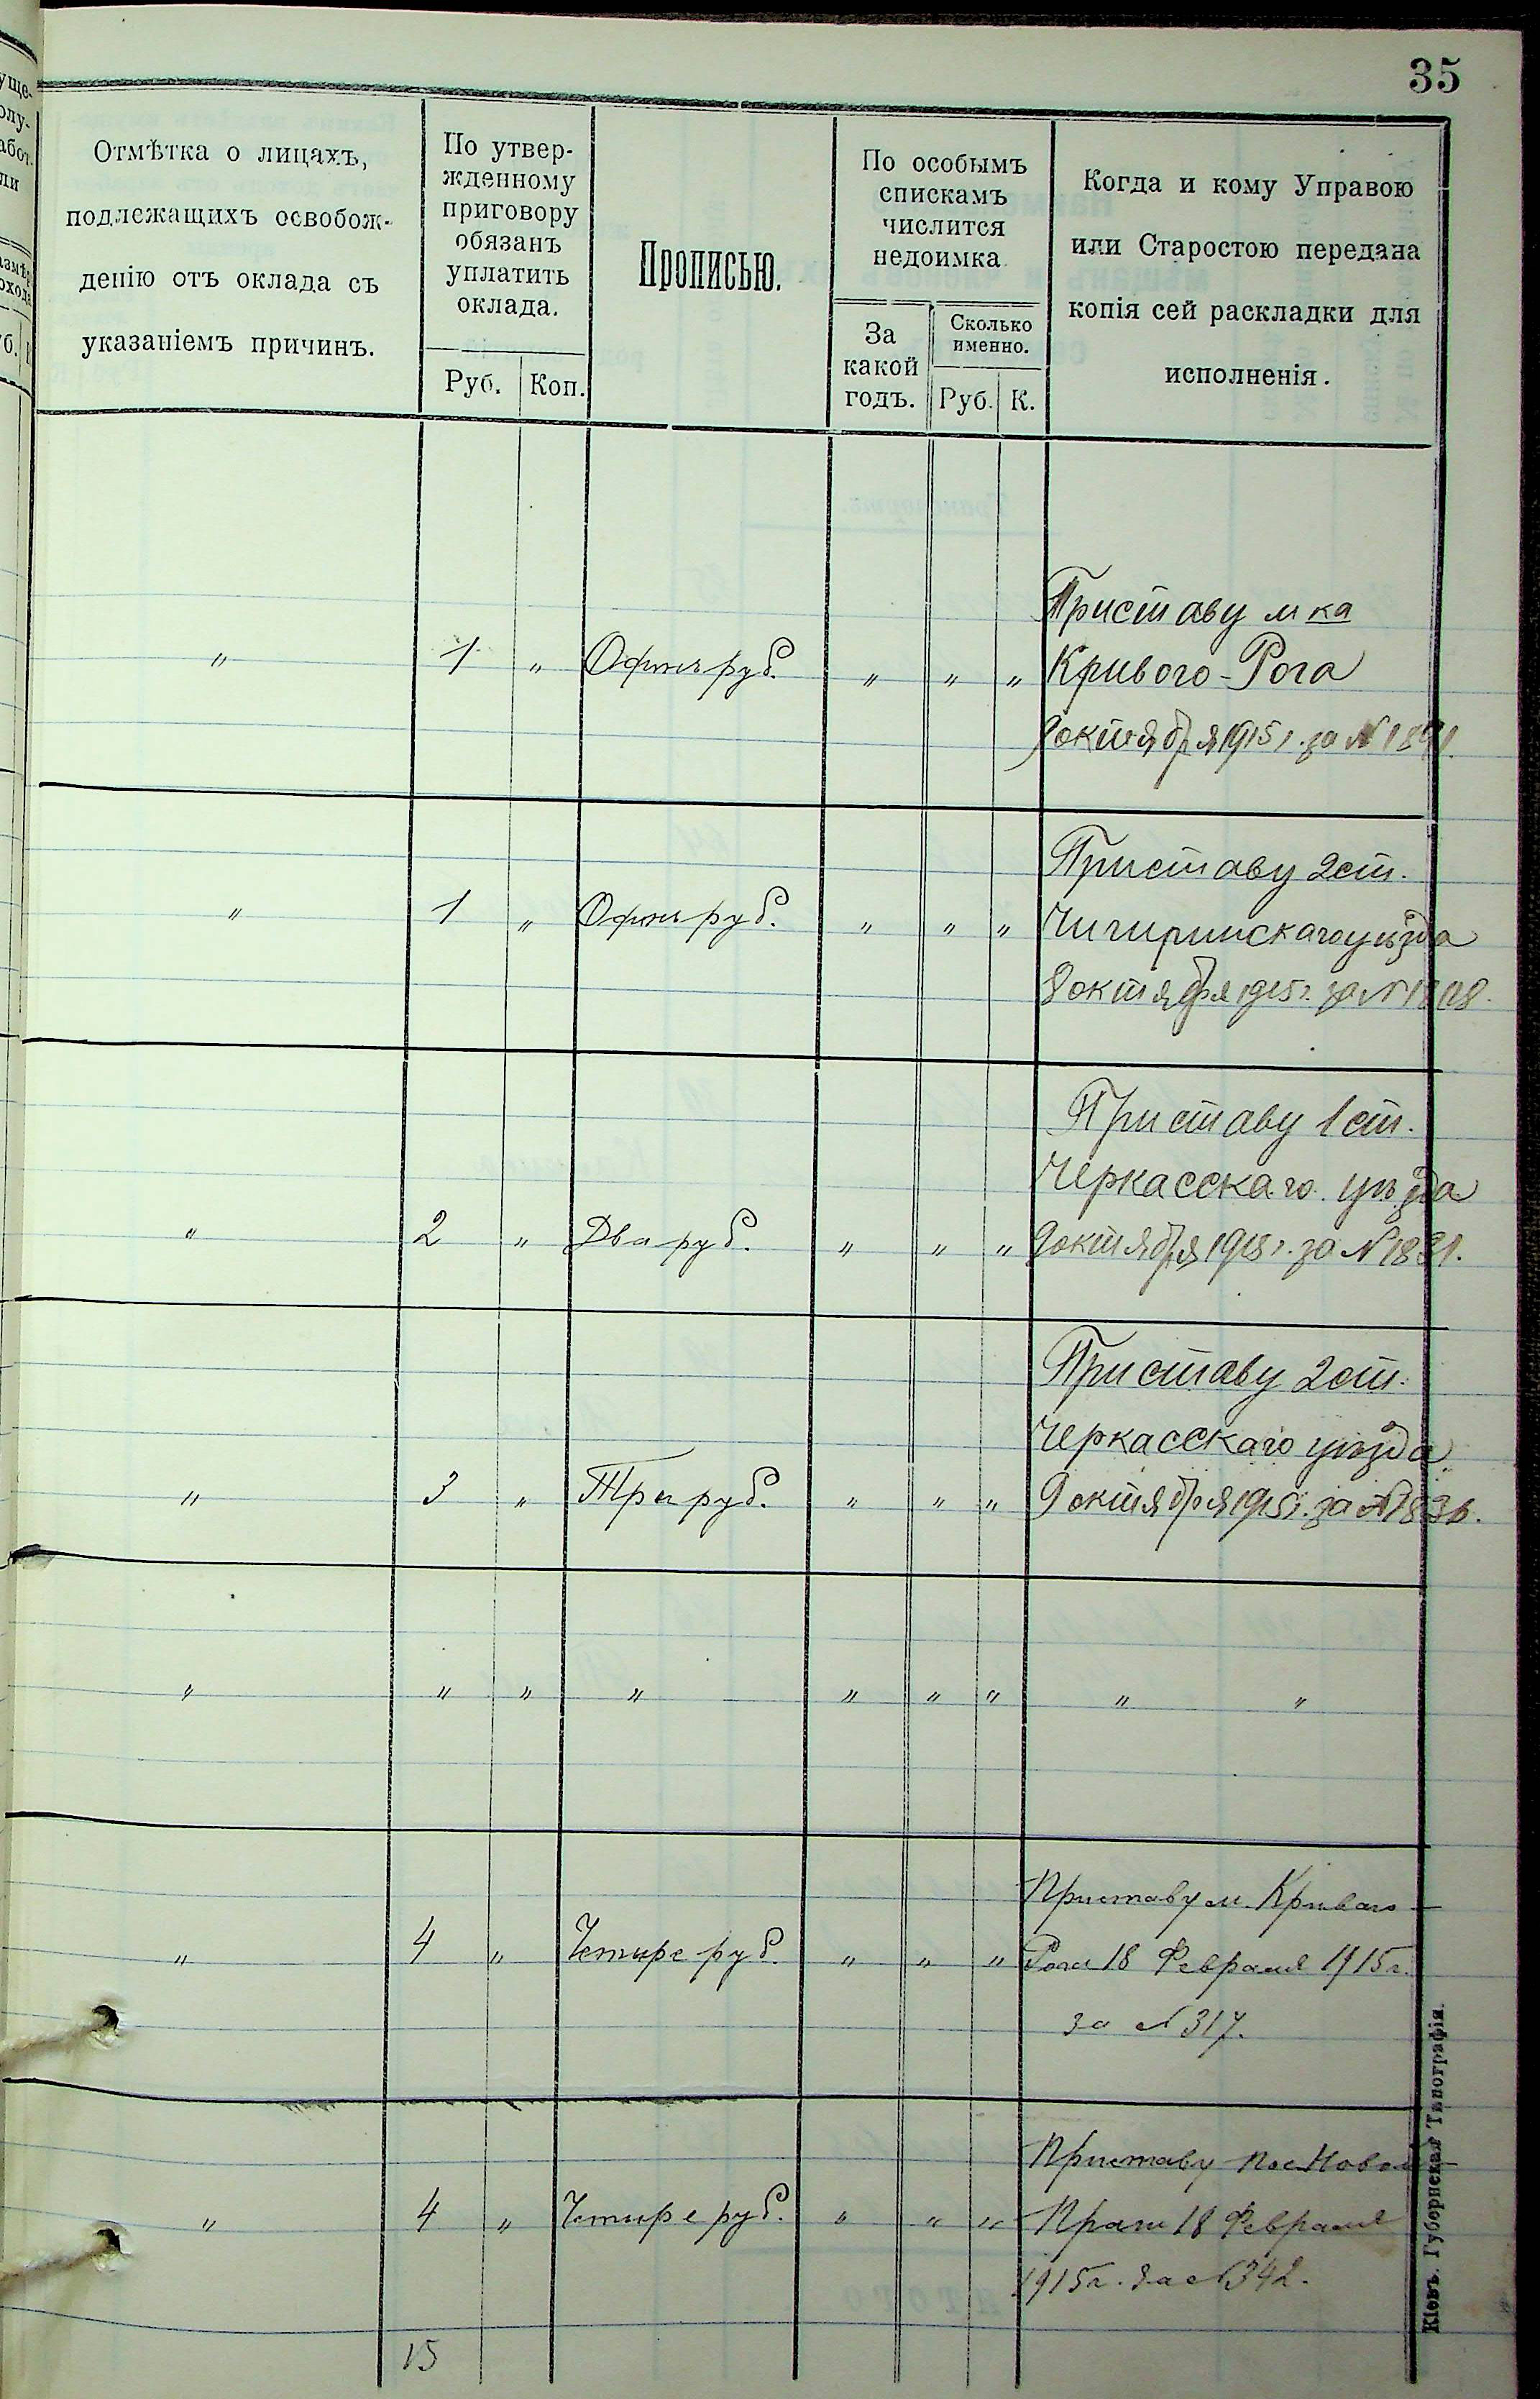 35
Отмѣтка о лицахъ,
подлежащихъ освобож-
денію отъ оклада съ
указаніемъ причинъ.
По утвер-
жденному
приговору
обязанъ
уплатить
оклада.
Руб. Коп.
Прописью.
По особымъ
спискамъ
числится
недоимка
За
какой
годъ.
Сколько
именно.
Руб. К.
Когда и кому Управою
или Старостою передана
копія сей раскладки для
исполненія.
Приставу м ка
" 1 " Одинъ руб. " " " Кривого-Рога
9 октября 1915 г. за №
Приставу 2 ст.
" 1 " Одинъ руб. " " " Чигиринскаго уѣзда
8 октября 1915 г. за №
Приставу 1 ст.
Черкасскаго уѣзда
" 2 " Два руб. " " " 9 октября 1915 г. за № 1831.
Приставу 2 ст.
Черкасскаго уѣзда
" 3 " Три руб. " " " 9 октября 1915 г. за № 1836.
" " " " " " " " "
Приставу м. Криваго-
" 4 " Четыре руб. " " " Рога 18 Февраля 1915 г.
за № 317.
Приставу пос. Новой
" 4 " Четыре руб. " " " Праги 18 Февраля
1915 г. за № 342.
15
Кіевъ. Губернская Типографія.